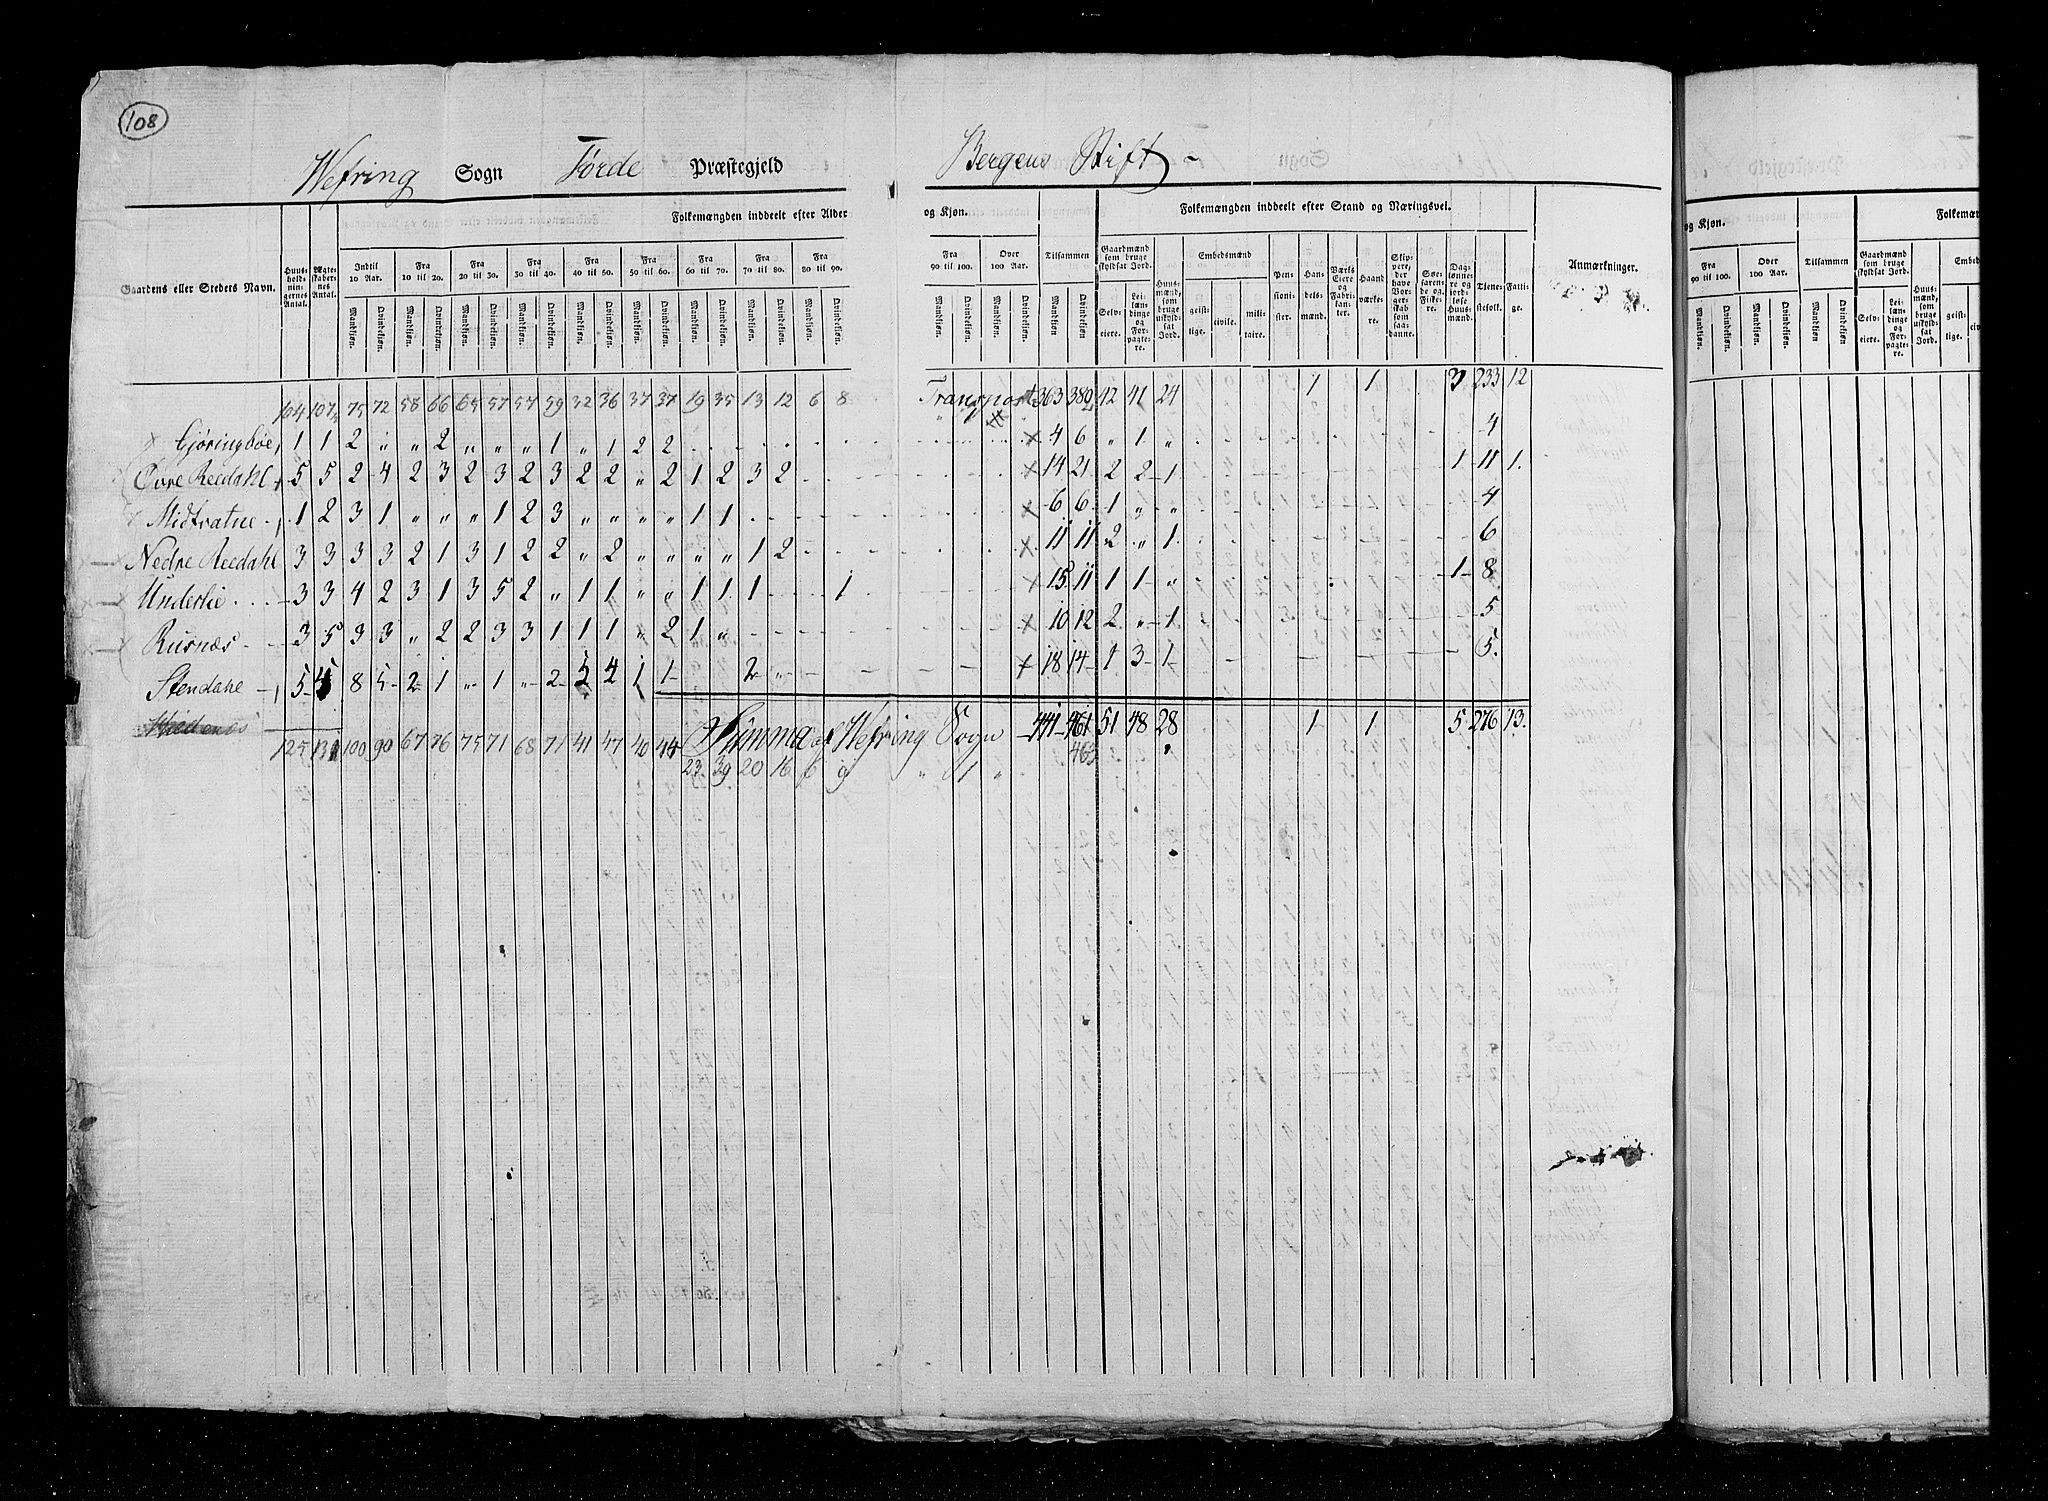 108
Wefring Sogn Førde Præstegjeld Bergens Stift
Gaardens eller Stedets Navn. Huusholdningernes Antal. Ægteskabernes Antal. Folkemængden inddeelt efter Alder og Kjøn. Tilsammen Folkemængden inddeelt efter Stand og Næringsvei. Anmærkninger.
Indtil 10 Aar. Fra 10 til 20. Fra 20 til 30. Fra 30 til 40. Fra 40 til 50. Fra 50 til 60. Fra 60 til 70. Fra 70 til 80. Fra 80 til 90. Fra 90 til 100. Over 100 Aar. Gaardmænd som bruge skyldsat Jord. Huusmænd, som bruge uskyldsat Jord. Embedsmænd Pensionister. Handelsmænd. Værks Eiere og Fabrikanter. Haandværkere. Skippere, der have Borgerskab som saadanne. Søefarende og Fiskere. Dagleiønnere og jordløse Huusmænd. Tienestefolk. Fattige.
Mandkiøn. Qvindekiøn. Selveiere. Leilændinge og Forpagtere. geistlige. civile. militaire.
104 107 75 72 58 66 65 57 57 59 32 36 37 37 19 35 13 12 6 8 Transport 363 389 42 41 24 1 1 3 233 12
Gjøringbøe 1 1 2 „ „ 2 „ „ „ 1 „ 1 2 2 × 4 6 „ 1 „ 4
Øvre Reedahl 5 5 2 4 2 3 2 3 2 3 2 2 „ 2 1 2 3 2 × 14 21 2 2 1 1 11 1.
Midtvatne 1 2 3 1 „ „ „ 1 2 3 „ „ „ „ 1 1 × 6 6 1 „ „ 4
Nedre Reedahl 3 3 3 3 2 1 3 1 2 2 „ 2 „ „ „ „ 1 2 × 11 11 2 „ 1 6
Underlie 3 3 4 2 3 1 3 5 2 „ 1 1 „ „ 1 1 1 1 × 15 11 1 1 „ 1 8
Rusnæs 3 5 3 3 „ 2 2 3 3 1 1 1 „ 2 1 „ × 10 12 2 „ 1 5
Stendahl 5 8 5 2 1 „ 1 „ 2 5 4 1 1 2 „ × 18 14 1 3 1 5.
125 131 100 90 67 76 75 71 68 71 41 47 40 44 Summa af Wefring Sogn 441 461 51 48 28 1 1 5 276 13.
23 39 20 16 6 9 „ 1 „ 463
Præstegjeld
og Kjøn. Folkemæn
Fra 90 til 100. Over 100 Aar. Tilsammen Gaardmænd som bruge skyldsat Jord. Huusmænd, som bruge uskyldsat Jord. Embeds
Mandkiøn. Qvindekiøn. Selveiere. Leilændinge og Forpagtere. geistlige.